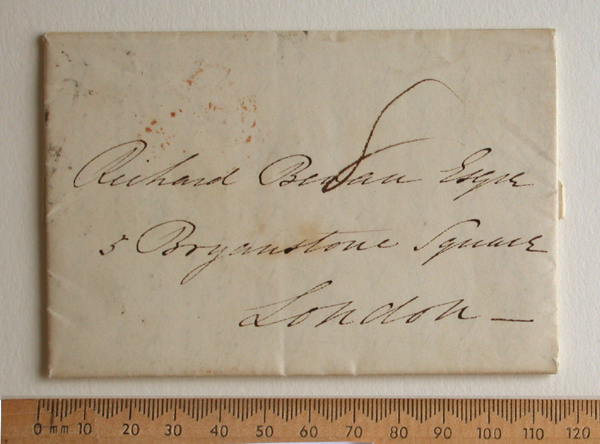 8
Richard Bevan Esqre
5 Bryanstone Square
London —
0 mm 10 20 30 40 50 60 70 80 90 100 110 120